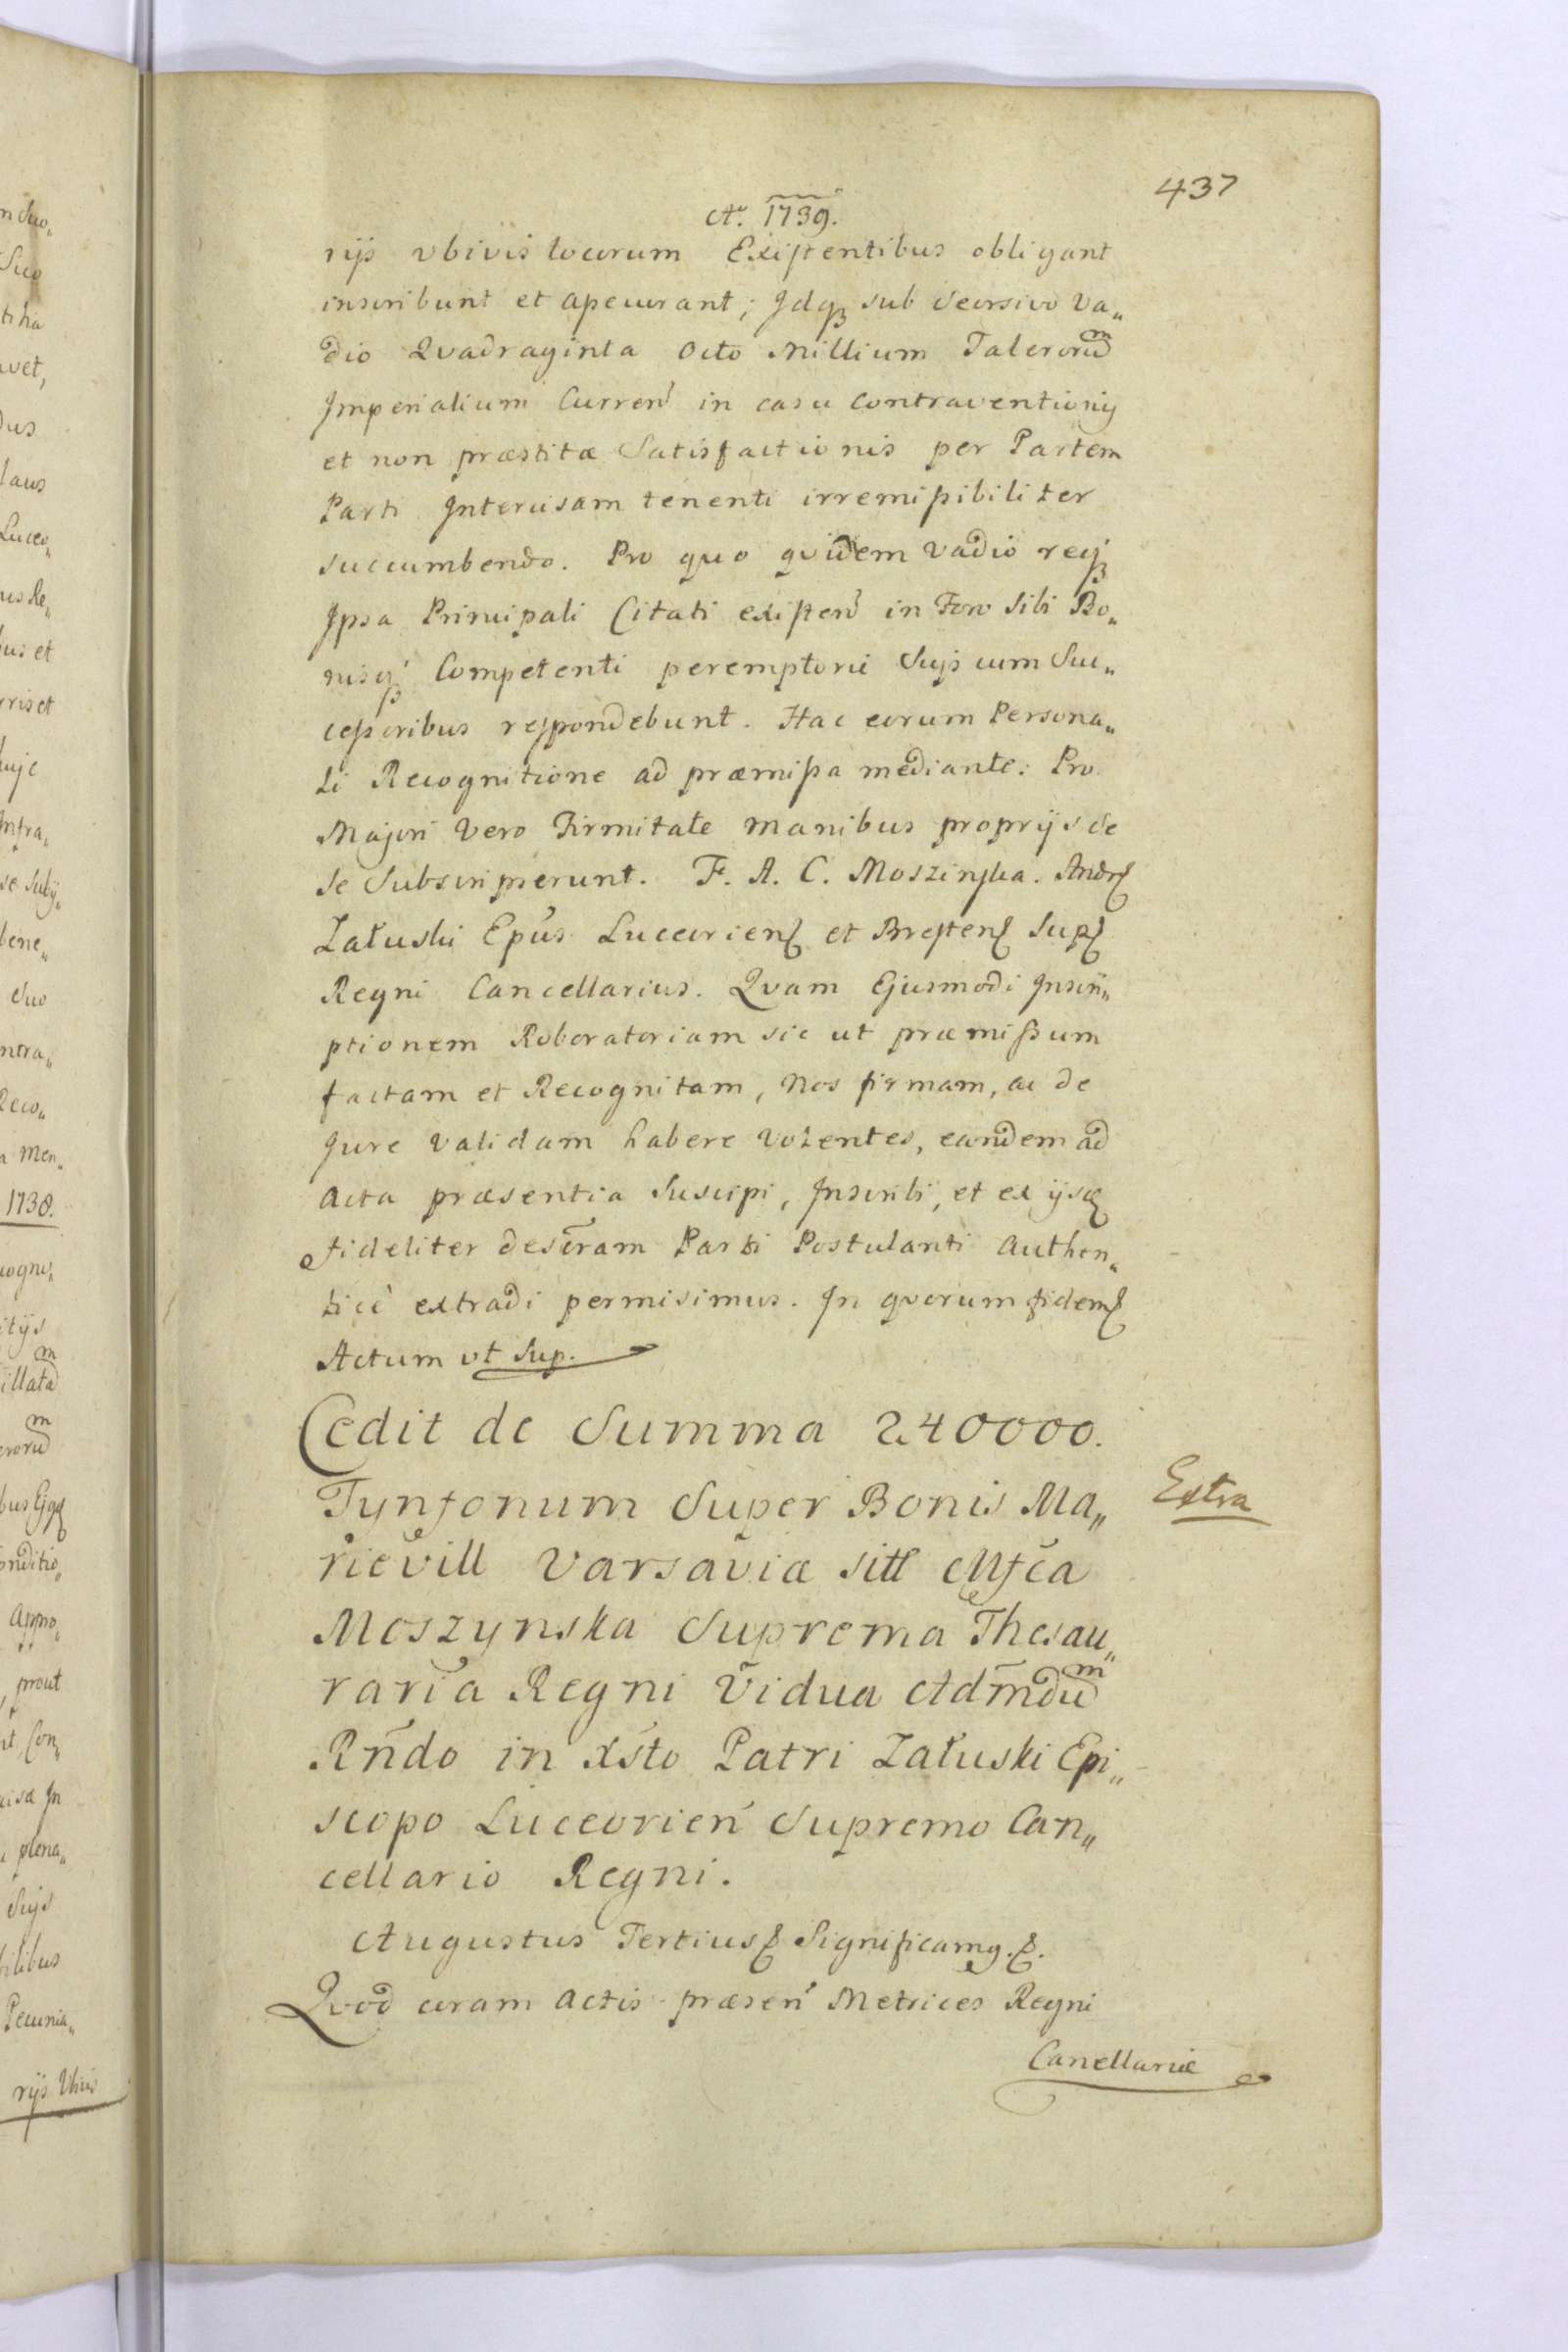 437
Aº. 1739.
rijs vbivis locorum Existentibus obligant
inscribunt et apecurant; Idqꝫ sub seorsivo Va„
dio Qvadraginta octo Millium Talerorum
Imperialium Curren̄ in casu Contraventionis
et non præstitæ Satisfactionis per Partem
Parti Intercisam tenenti irremissibiliter
succumbendo. Pro quo qvidem vadio reqꝫ
Ipsa Principali Citati existen̄ in Foro sibi Bo„
nisqꝫ Competenti peremptorie Suis cum Suc„
cessoribus respondebunt. Hac eorum Persona„
li Recognitione ad præmissa mediante. Pro
Majori Vero Firmitate manibus proprijs de
se Subscripserunt. F. A. C. Moszinska. Andr
Załuski Epūs Luceorien et Bresten Sup
Regni Cancellarius. Qvam Ejusmodi Inscri„
ptionem Roboratoriam sic ut præmissum
factam et Recognitam, Nos firmam, ac de
Jure validam habere Volentes, eandem ad
Acta præsentia Suscipi, Inscribi, et ex ijs
fideliter descr̄am Parti Postulanti Authen„
ticè extradi permisimus. In qvorum fidem
Actum ut sup.
Cedit de Summa 240000.
Tynfonum Super Bonis Ma„
rievill Varsaviæ sitt Mfca
Moszynska Suprema Thesau„
raria Regni Vidua Adm̄dum
Rn̄do in Xsto Patri Załuski Epi„
scopo Luceorien̄ Supremo Can„
cellario Regni.
Extra
Augustus Tertius Significamg.
Qvod coram Actis præsen̄ Metrices Regni
Canellariæ